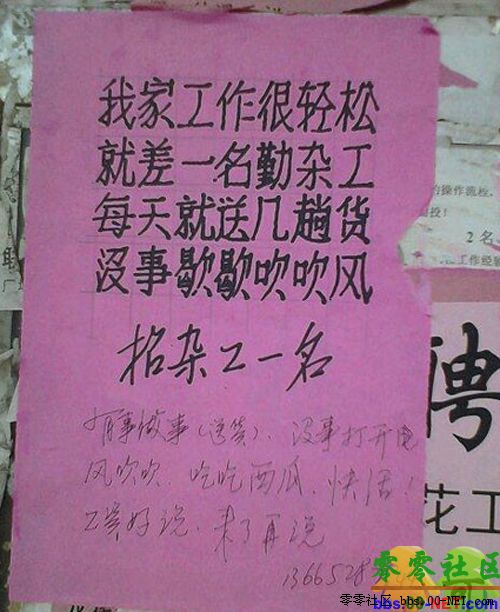 我家工作很轻松
就差一名勤杂工
每天就送几趟货
没事歇歇吹吹风
招杂工一名
有事做事(送货)、没事打开电
风吹吹、吃吃西瓜、快活!
工资好说、来了再说
1366528
的操作流程、
2名
工作经验
聘
花工
零零社区
零零社区 bbs.00-NET.com